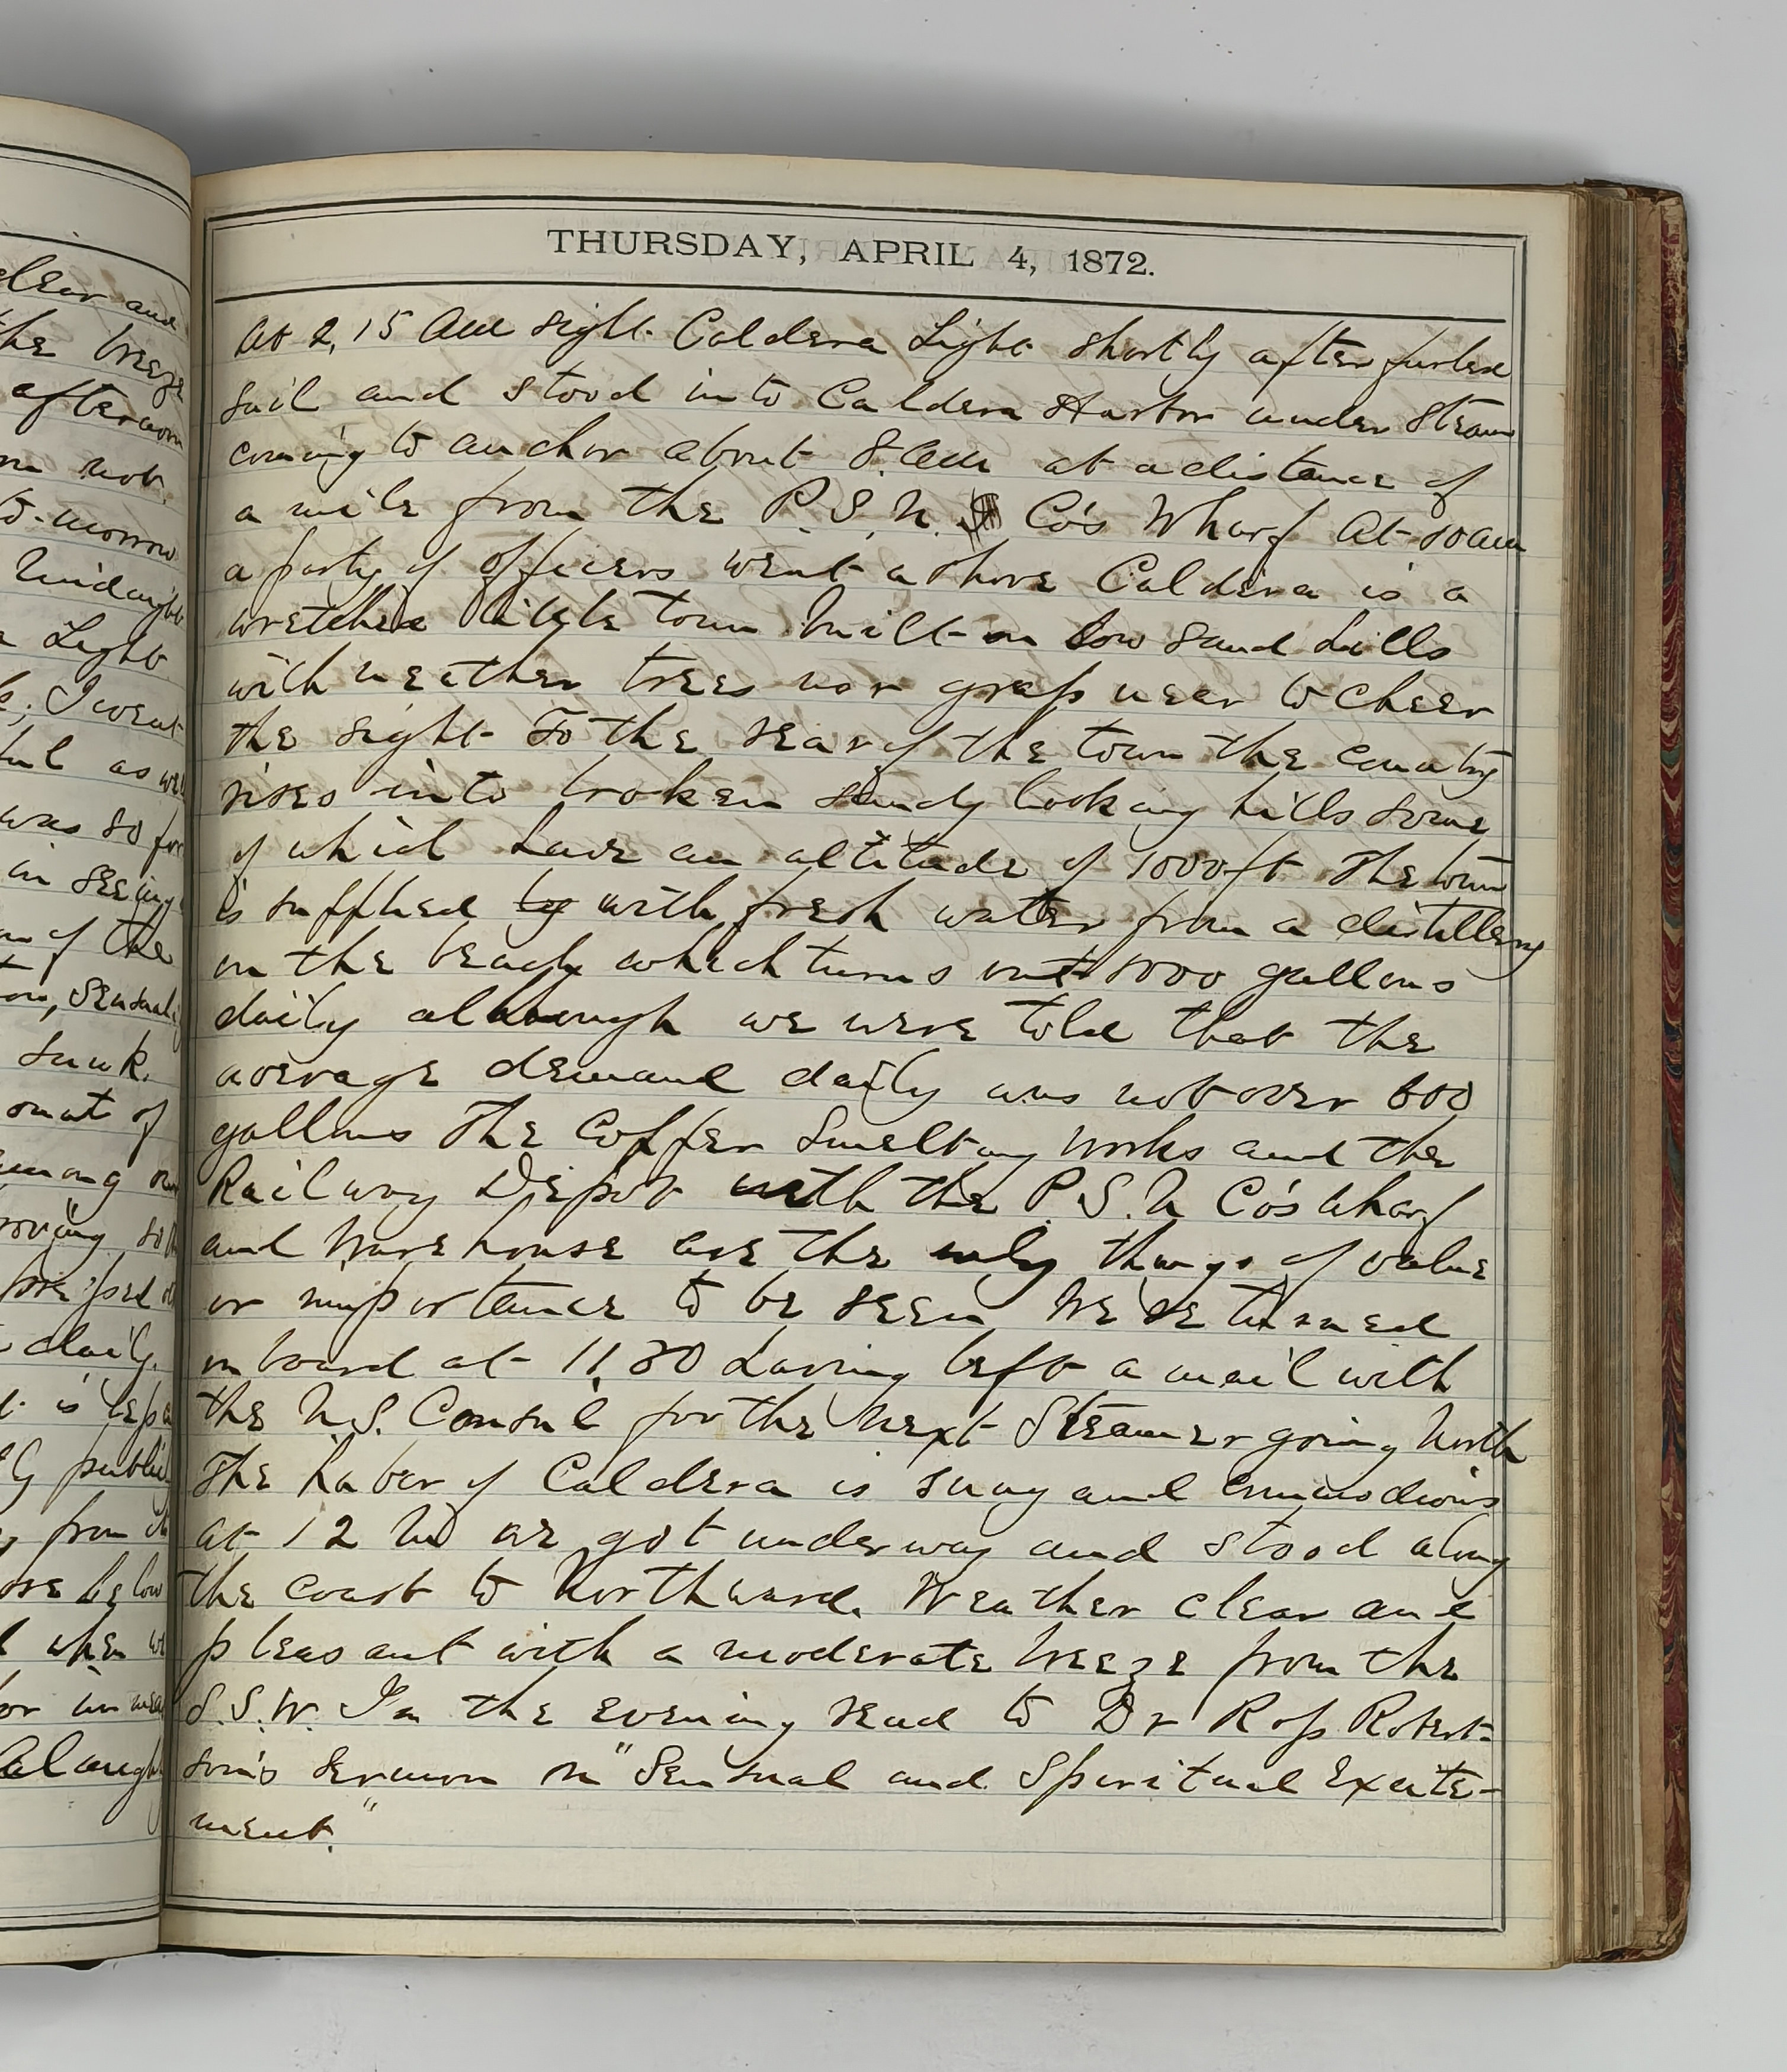 clear and
the breeze
afternoon
not
to-morrow
Midnight
Light
I went
as we
was so for
in seeing
of the
Sensual
Sunk.
of
among our
daily.
it is
public
from
below
when we
or in
Al
THURSDAY, APRIL 4, 1872.
At 2,15 Am sight Caldera Light shortly after furled
sail and stood into Caldera Harbor under steam
coming to anchor about 8.Am at a distance of
a mile from the P.S.N. Co's Wharf At 10 am
a party of officers went ashore Caldera is a
wretched little town built on low sand hills
with neither trees nor grass near to cheer
the sight To the rear of the town the country
rises into broken sandy looking hills some
of which have an altitude of 1000 ft The town
is supplied by with fresh water from a distillery
on the beach which turns out 8000 gallons
daily although we were told that the
average demand daily was not over 600
gallons The Copper Smelting Works and the
Railway Depot with the P.S.N Co's wharf
and Ware house are the only things of value
or importance to be seen We returned
on board at 11,30 having left a mail with
the U.S. Consul for the next Steamer going North
The habor of Caldera is snug and commodious
at 12 M we got underway and stood along
the coast to Northward. Weather clear and
pleasant with a moderate breeze from the
S.S.W. In the evening read to Dr Ross Robert-
son's sermon on "Sensual and Spiritual Excite-
ment."